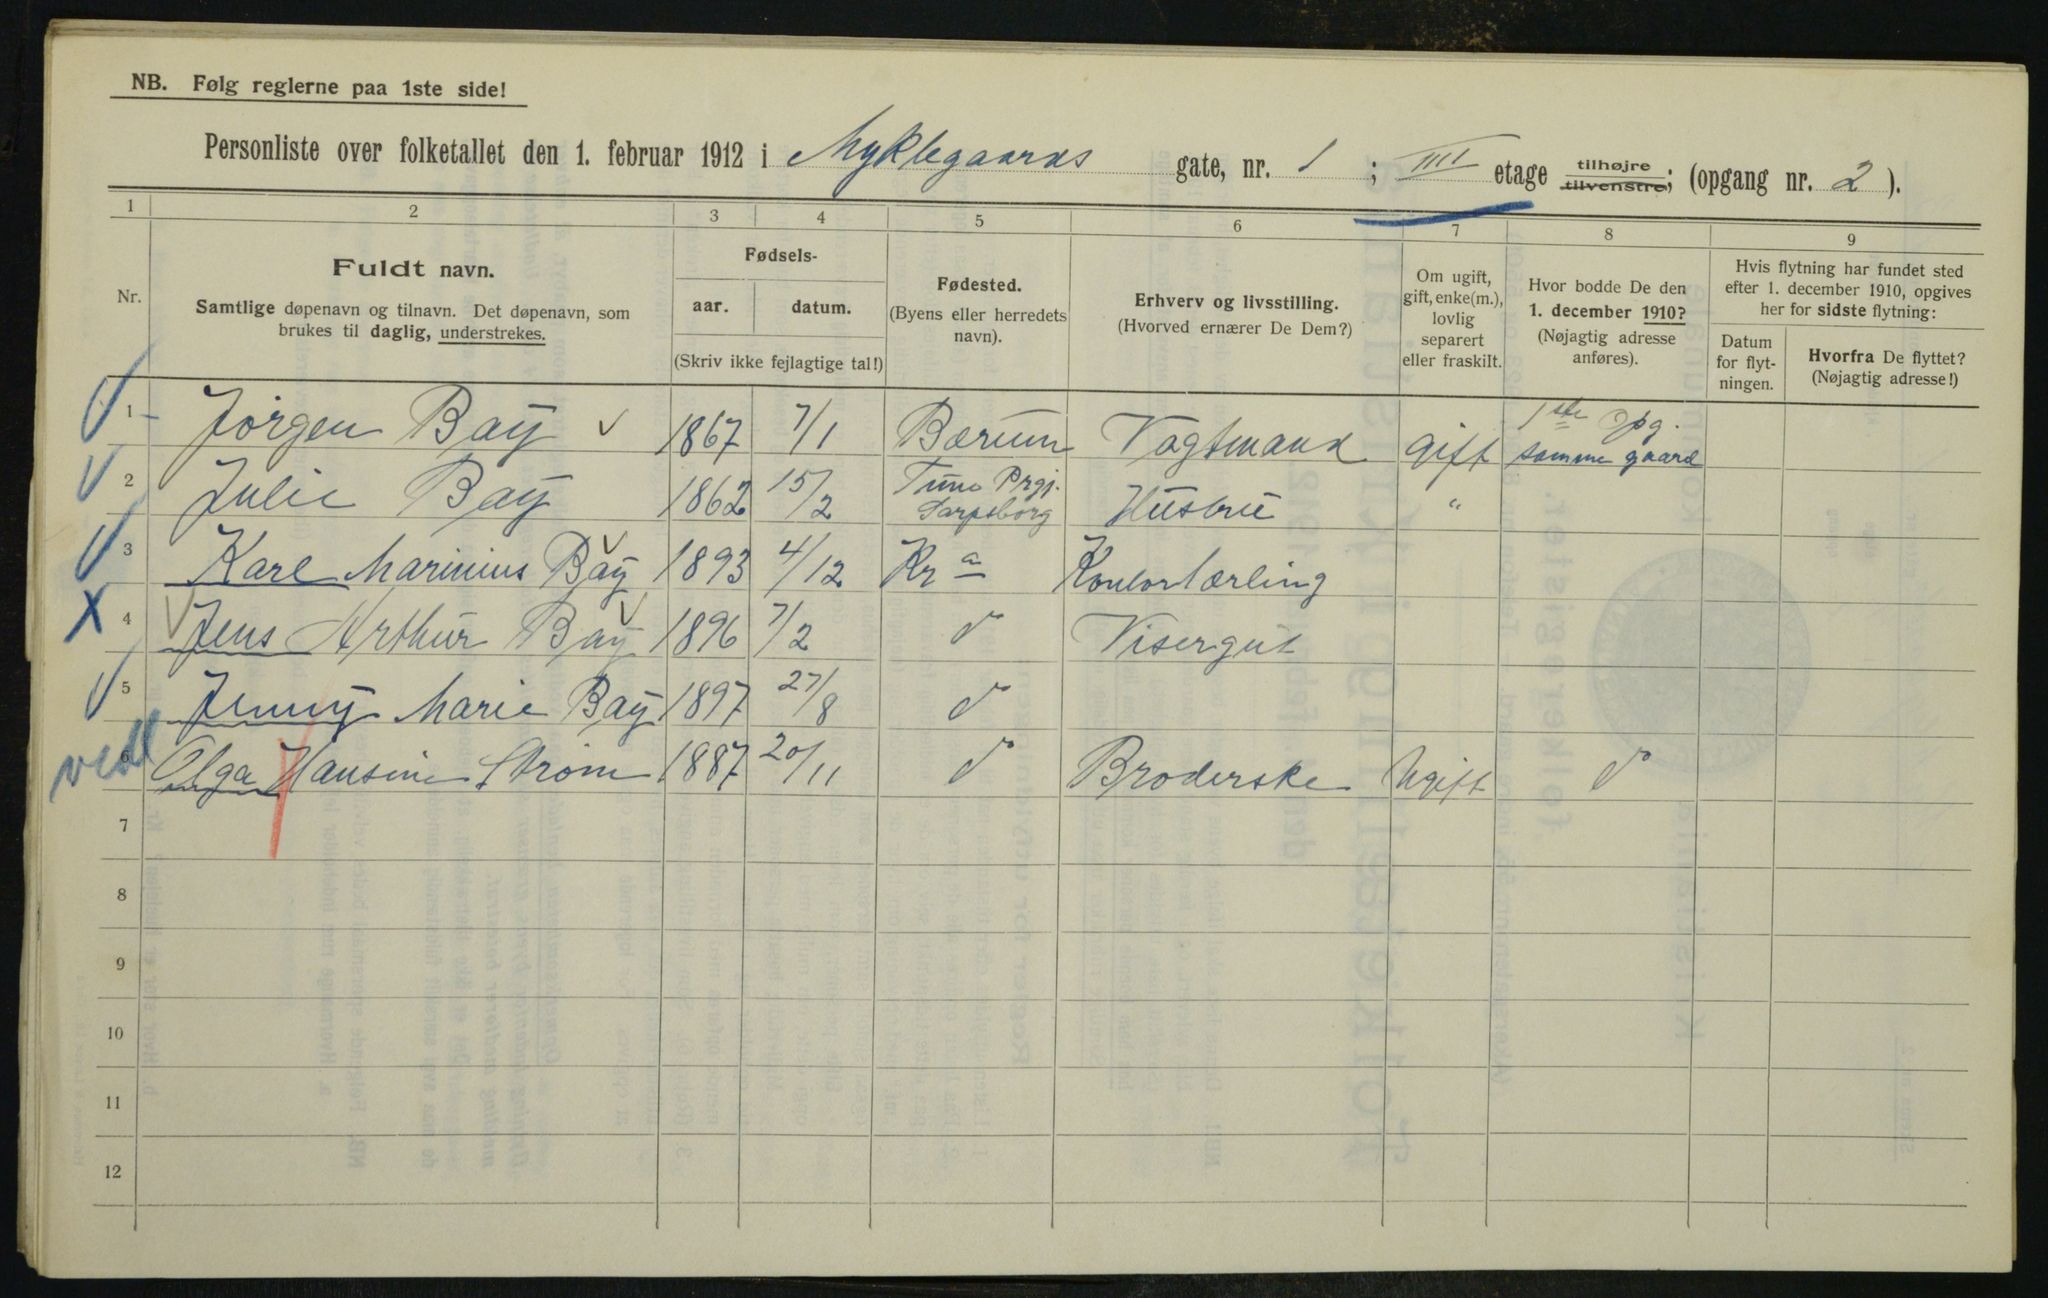 NB. Følg reglerne paa 1ste side!
Personliste over folketallet den 1. februar 1912 i Myklegaards gate, nr. 1 ; IIII etage tilhøjre tilvenstre; (opgang nr. 2 ).
1 2 3 4 5 6 7 8 9
Nr.
Fuldt navn.
Samtlige døpenavn og tilnavn. Det døpenavn, som
brukes til daglig, understrekes.
Fødsels-
aar. datum.
(Skriv ikke fejlagtige tal!)
Fødested.
(Byens eller herredets
navn).
Erhverv og livsstilling.
(Hvorved ernærer De Dem?)
Om ugift,
gift, enke(m.),
lovlig
separert
eller fraskilt.
Hvor bodde De den
1. december 1910?
(Nøjagtig adresse
anføres).
Hvis flytning har fundet sted
efter 1. december 1910, opgives
her for sidste flytning:
Datum
for flyt-
ningen.
Hvorfra De flyttet?
(Nøjagtig adresse!)
1 Jörgen Bay 1867 7/1 Bærum Vagtmand gift 1ste Opg. samme gaard
2 Julie Bay 1862 15/2 Tune Prgj. Sarpsborg Hustru "
3 Karl Marinius Bay 1893 4/12 Kra Kontorlærling
4 Jens Arthur Bay 1896 7/2 d Visergut
5 Jenny Marie Bay 1897 27/8 d
6 Olga Hansine Strøm 1887 20/11 d Broderske Ugift d
7
8
9
10
11
12